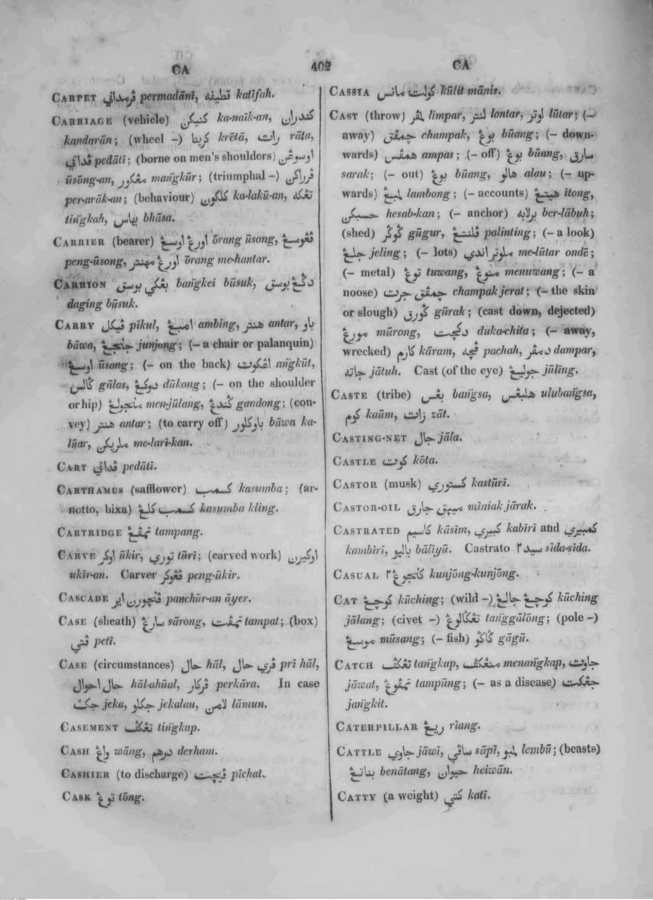 CA
402
CA
CARPET ڤرمداني permadānī, قطيفه katīfah.
CARRIAGE (vehicle) كنيكن ka-naik-an, كندران
kandarān; (wheel –) كريتا krētā, رات rāta,
ڤداتي pedātī; (borne on men's shoulders) اوسوڠن
ūsōng-an, مڠكور mangkūr; (triumphal –) ڤرراكن
per-arāk-an; (behaviour) كلكون ka-lakū-an, تڠكه
tingkah, بهاس bhāsa.
CARRIER (bearer) اورڠ اوسڠ ōrang ūsong, ڤڠوسڠ
peng-ūsong, اورڠ مهنتر ōrang me-hantar.
CARRION بڠكي بوسق bangkei būsuk, داڬڠ بوسق
daging būsuk.
CARRY ڤيكل pikul, امبڠ ambing, هنتر antar, باو
bāwa, جنجڠ junjong; (– a chair or palanquin)
اوسڠ ūsong; (– on the back) اڠكوت angkūt,
كالس gālas, دوكڠ dūkong; (– on the shoulder
or hip) منجولڠ men-jūlang, ڬندڠ gandong; (con-
vey) هنتر antar; (to carry off) باوكلور bāwa ka-
lūar, ملاريكن me-lari-kan.
CART ڤداتي pedātī.
CARTHAMUS (safflower) كسمب kasumba; (ar-
notto, bixa) كسمب كلڠ kasumba kling.
CARTRIDGE تمڤڠ tampang.
CARVE اوكر ūkir, توري tūrī; (carved work) اوكيرن
ukir-an. Carver ڤڠوكر peng-ūkir.
CASCADE ڤنچورن اير panchūr-an āyer.
CASE (sheath) سارڠ sārong, تمڤت tampat; (box)
ڤتي petī.
CASE (circumstances) حال hāl, ڤري حال prī hāl,
حال احوال hāl-ahūal, ڤركار perkāra. In case
جك jeka, جكلو jekalau, لامن lāmun.
CASEMENT تڠكڤ tingkap.
CASH واڠ wāng, درهم derham.
CASHIER (to discharge) ڤيچت pīchat.
CASK توڠ tōng.
CASSIA كولت مانس kūlit mānis.
CAST (throw) لمڤر limpar, لنتر lontar, لوتر lūtar; (–
away) چمڤق champak, بوڠ būang; (– down-
wards) همڤس ampas; (– off) بوڠ būang, سارق
sarak; (– out) بوڠ būang, هالو alau; (– up-
wards) لمبڠ lambong; (– accounts) هيتڠ ītong,
حسبكن hesab-kan; (– anchor) برلابه ber-lābuh;
(shed) ڬوڬر gūgur, ڤلنتڠ palinting; (– a look)
جلڠ jeling; (– lots) ملوتر اندي me-lūtar ondē;
(– metal) توڠ tuwang, منوڠ menuwang; (– a
noose) چمڤق جرت champak jerat; (– the skin
or slough) ڬورق gūrak; (cast down, dejected)
مورڠ mūrong, دكچت duka-chita; (– away,
wrecked) كارم kāram, ڤچه pachah, دمڤر dampar,
جاته jātuh. Cast (of the eye) جولڠ jūling.
CASTE (tribe) بڠس bangsa, هلبڠس ulubangsa,
كوم kaūm, زات zāt.
CASTING-NET جال jāla.
CASTLE كوت kōta.
CASTOR (musk) كستوري kastūrī.
CASTOR-OIL مينق جارق mīniak jārak.
CASTRATED كاسيم kāsīm, كبيري kabīrī and كمبيري
kambīrī, باليو bālīyū. Castrato سيد٢ sīda-sīda.
CASUAL كنجوڠ٢ kunjōng-kunjōng.
CAT كوچڠ kūching; (wild –) كوچڠ جالڠ kūching
jālang; (civet –) تڠكالوڠ tanggālōng; (pole –)
موسڠ mūsang; (– fish) ڬاڬو gāgū.
CATCH تڠكڤ tangkap, منڠكڤ menangkap, جاوت
jāwat, تمڤوڠ tampūng; (– as a disease) جڠكت
jangkit.
CATERPILLAR ريڠ rīang.
CATTLE جاوي jāwī, ساڤي sāpī, لمبو lembū; (beasts)
بناتڠ benātang, حيوان heiwān.
CATTY (a weight) كتي katī.